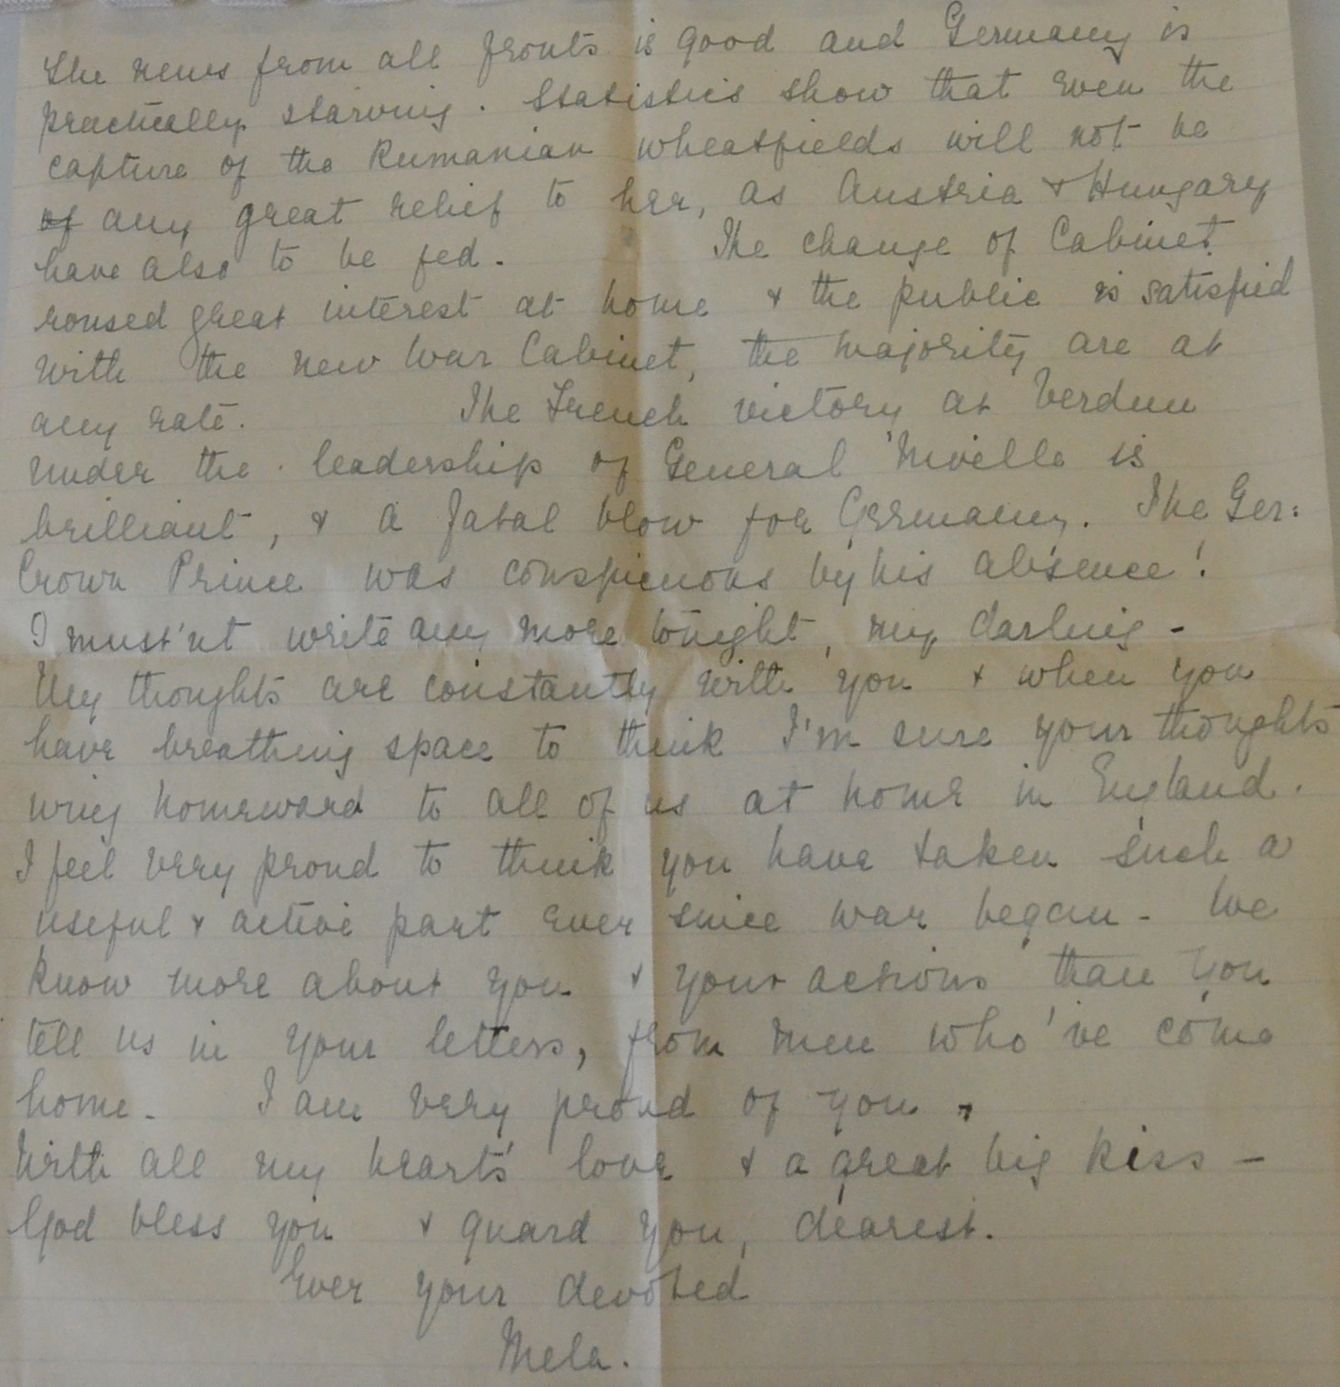 The news from all fronts is good and Germany is
practically starving. Statistics show that even the
capture of the Rumanian wheatfields will not be
of any great relief to her, as Austria & Hungary
have also to be fed. The change of Cabinet
roused great interest at home & the public is satisfied
with the new War Cabinet, the majority are at
any rate. The French victory at Verdun
under the leadership of General Nivelle is
brilliant, & a fatal blow for Germany. The Ger:
Crown Prince was conspicuous by his absence!
I must'nt write any more tonight, my darling -
My thoughts are constantly with you & when you
have breathing space to think I'm sure your thoughts
wing homeward to all of us at home in England.
I feel very proud to think you have taken such a
useful & active part ever since war began - We
know more about you & your actions than you
tell us in your letters, from men who've come
home - I am very proud of you.
With all my heart's love & a great big kiss -
God bless you & guard you, dearest.
Ever your devoted
Mela.